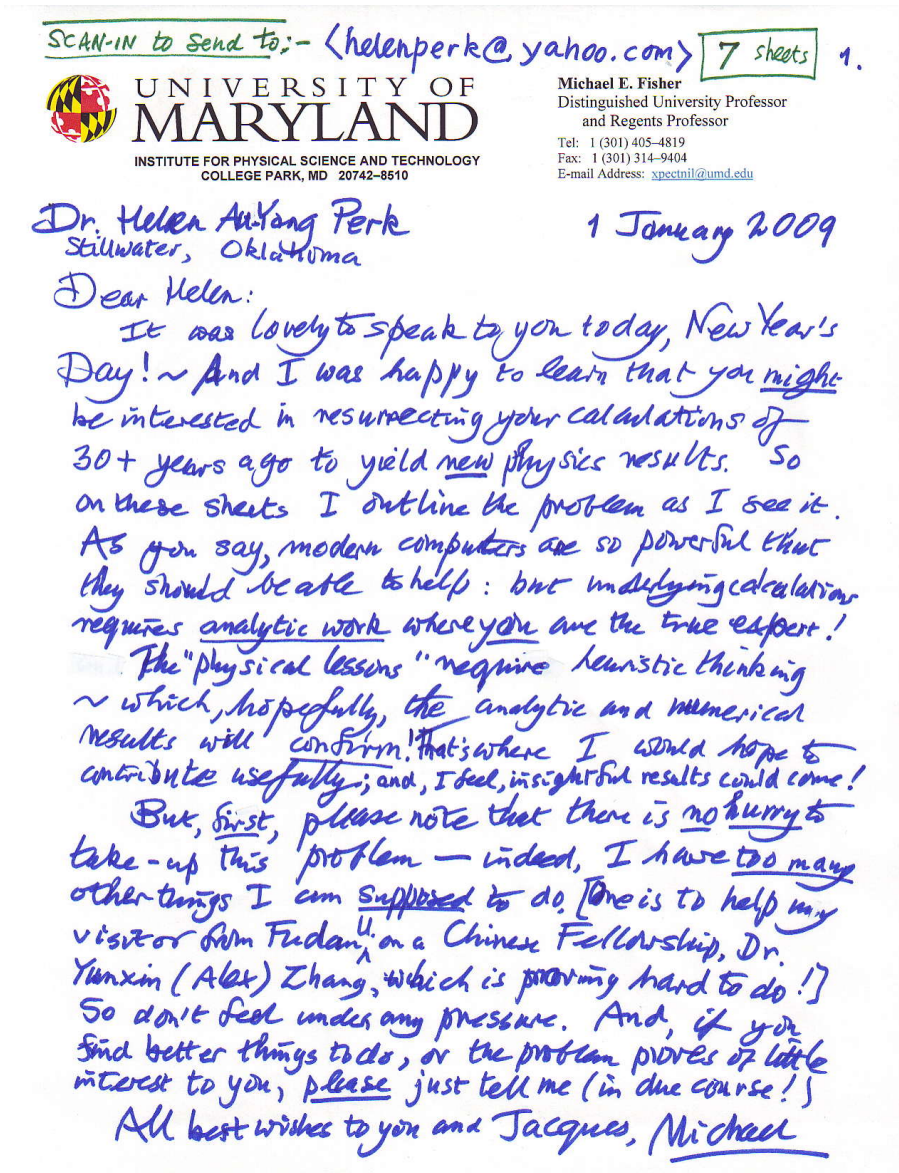 SCAN-IN to Send to;- <helenperk@yahoo.com> 7 sheets 1.
UNIVERSITY OF
MARYLAND
INSTITUTE FOR PHYSICAL SCIENCE AND TECHNOLOGY
COLLEGE PARK, MD 20742–8510
Michael E. Fisher
Distinguished University Professor
and Regents Professor
Tel: 1 (301) 405–4819
Fax: 1 (301) 314–9404
E-mail Address: xpectnil@umd.edu
Dr. Helen Au-Yang Perk
Stillwater, Oklahoma
1 January 2009
Dear Helen:
It was lovely to speak to you today, New Year's
Day! ~ And I was happy to learn that you might
be interested in resurrecting your calculations of
30+ years ago to yield new physics results. So
on these sheets I outline the problem as I see it.
As you say, modern computers are so powerful that
they should be able to help: but underlying calculations
requires analytic work where you are the true expert!
The "physical lessons" require heuristic thinking
~ which, hopefully, the analytic and numerical
results will confirm! That's where I would hope to
contribute usefully; and, I feel, insightful results could come!
But, first, please note that there is no hurry to
take-up this problem — indeed, I have too many
other things I am supposed to do. [One is to help my
visitor from Fudan U., on a Chinese Fellowship, Dr.
Yunxin (Alex) Zhang, which is proving hard to do!]
So don't feel under any pressure. And, if you
find better things to do, or the problem proves of little
interest to you, please just tell me (in due course!)
All best wishes to you and Jacques, Michael